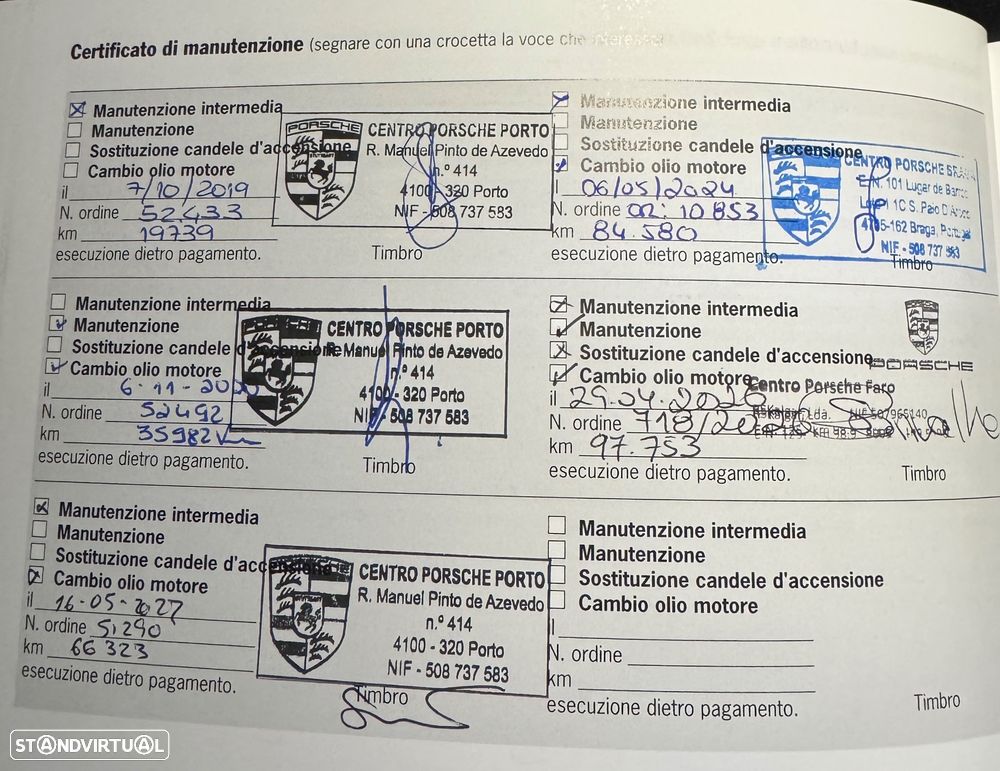 Certificato di manutenzione (segnare con una crocetta la voce che interessa)
Manutenzione intermedia
Manutenzione
Sostituzione candele d'accensione
Cambio olio motore
il 7/10/2019
N. ordine 52433
km 19739
esecuzione dietro pagamento.
Timbro
PORSCHE
CENTRO PORSCHE PORTO
R. Manuel Pinto de Azevedo
n.º 414
4100-320 Porto
NIF - 508 737 583
Manutenzione intermedia
Manutenzione
Sostituzione candele d'accensione
Cambio olio motore
il 6-11-2020
N. ordine 52492
km 35982 km
esecuzione dietro pagamento.
Timbro
PORSCHE
CENTRO PORSCHE PORTO
R. Manuel Pinto de Azevedo
n.º 414
4100-320 Porto
NIF - 508 737 583
Manutenzione intermedia
Manutenzione
Sostituzione candele d'accensione
Cambio olio motore
il 16-05-
N. ordine 51290
km 66323
esecuzione dietro pagamento.
Timbro
CENTRO PORSCHE PORTO
R. Manuel Pinto de Azevedo
n.º 414
4100-320 Porto
NIF - 508 737 583
Manutenzione intermedia
Manutenzione
Sostituzione candele d'accensione
Cambio olio motore
il 06/05/2024
N. ordine OR: 10853
km 84.580
esecuzione dietro pagamento.
Timbro
CENTRO PORSCHE BRAGA
E.N. 101 Lugar de
1C S.
4705-162 Braga, Portugal
NIF - 508 737 583
Manutenzione intermedia
Manutenzione
Sostituzione candele d'accensione
Cambio olio motore
il 29.04.2026
N. ordine 718/
km 97.753
esecuzione dietro pagamento.
Timbro
PORSCHE
Centro Porsche Faro
Lda. NIF 507965140
Manutenzione intermedia
Manutenzione
Sostituzione candele d'accensione
Cambio olio motore
il
N. ordine
km
esecuzione dietro pagamento.
Timbro
STANDVIRTUAL